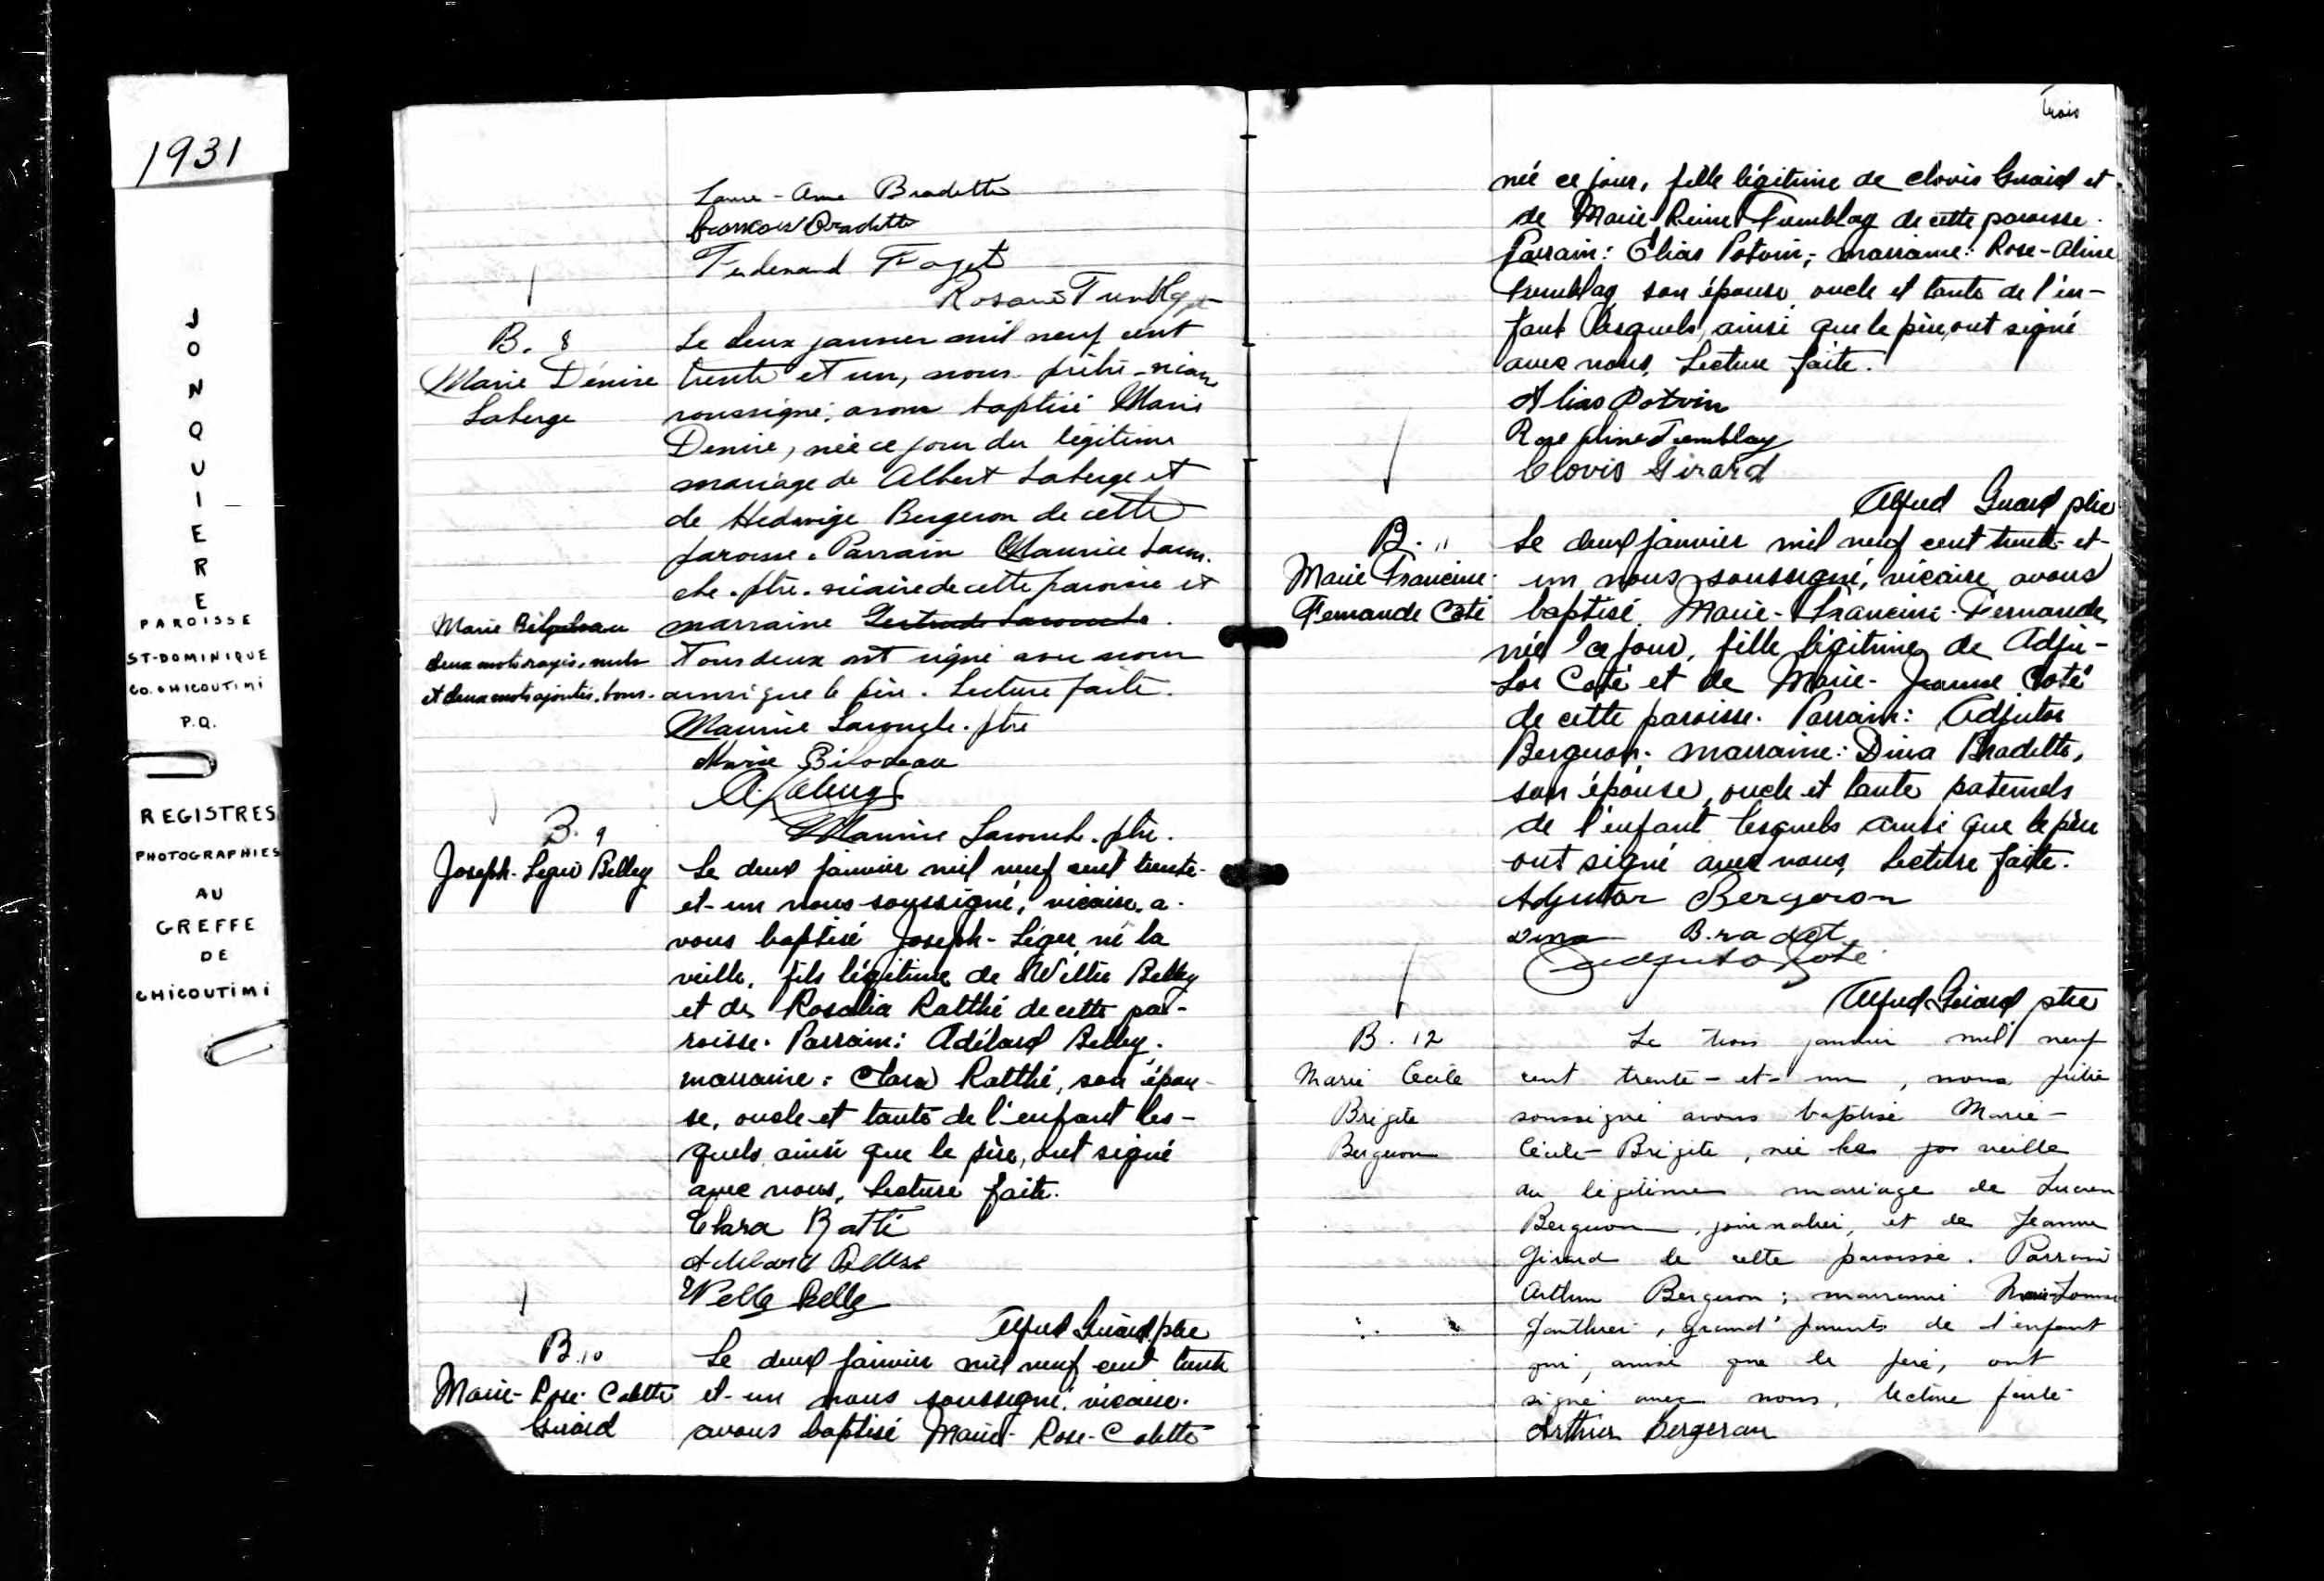 1931
JONQUIERE
PAROISSE
ST-DOMINIQUE
CO. CHICOUTIMI
P.Q.
REGISTRES
PHOTOGRAPHIES
AU
GREFFE
DE
CHICOUTIMI
Bradette
Bradette
Ferdinand
B. 8
Marie Denise
Laberge
Le deux janvier mil neuf cent
trente et un, nous prêtre-vicaire
soussigné, avons baptisé Marie
Denise, née ce jour du légitime
mariage de Albert Laberge et
de Hedwige Bergeron de cette
paroisse. Parrain Maurice Larou-
che. ptre. vicaire de cette paroisse et
marraine Gertrude Larouche.
Marie Bilodeau
deux mots rayés. nuls
et deux mots ajoutés. bons.
Tous deux ont signé avec nous
ainsi que le père. Lecture faite.
Maurice Larouche. ptre
Marie Bilodeau
A. Laberge
Maurice Larouche. ptre.
B. 9
Joseph-Leger Belley
Le deux janvier mil neuf cent trente-
et-un nous soussigné, vicaire, a-
vons baptisé Joseph-Léger né la
veille, fils légitime de Willie Belley
et de Rosalia Ratthé de cette pa-
roisse. Parrain: Adélard Belley.
marraine: Clara Ratthé, son épou-
se, oncle et tante de l'enfant les-
quels ainsi que le père, ont signé
avec nous, lecture faite.
Clara Ratté
Alfred Girard ptre
B. 10
Marie-Rose-Colette
Girard
Le deux janvier mil neuf cent trente
et-un nous soussigné, vicaire.
avons baptisé Marie-Rose-Colette
trois
née ce jour, fille légitime de Clovis Girard et
de Marie-Reine Tremblay de cette paroisse.
Parrain: Elias Potvin; marraine: Rose-Aline
Tremblay son épouse, oncle et tante de l'en-
fant lesquels, ainsi que le père, ont signé
avec nous, lecture faite.
Alias Potvin
Rose Aline Tremblay
Clovis Girard
Alfred Girard ptre
B. 11
Marie Francine-
Fernande Coté
Le deux janvier mil neuf cent trente-et-
un nous soussigné, vicaire avons
baptisé Marie-Francine-Fernande,
née ce jour, fille légitime de Adju-
tor Coté et de Marie-Jeanne Coté
de cette paroisse. Parrain: Adjutor
Bergeron; marraine: Dina Bradette,
son épouse, oncle et tante paternels
de l'enfant lesquels ainsi que le père
ont signé avec nous, lecture faite.
Adjutor Bergeron
Dina Bradet
Adjutor Coté
Alfred Girard ptre
B. 12
Marie Cecile
Brigite
Bergeron
Le trois janvier mil neuf
cent trente-et-un, nous prêtre
soussigné avons baptisé Marie-
Cécile-Brigite, née veille
du légitime mariage de Lucien
Bergeron, journalier, et de Jeanne
Girard de cette paroisse. Parrain
Arthur Bergeron; marraine
Gauthier, grand'parents de l'enfant
qui, ainsi que le père, ont
signé avec nous, lecture faite
Arthur Bergeron